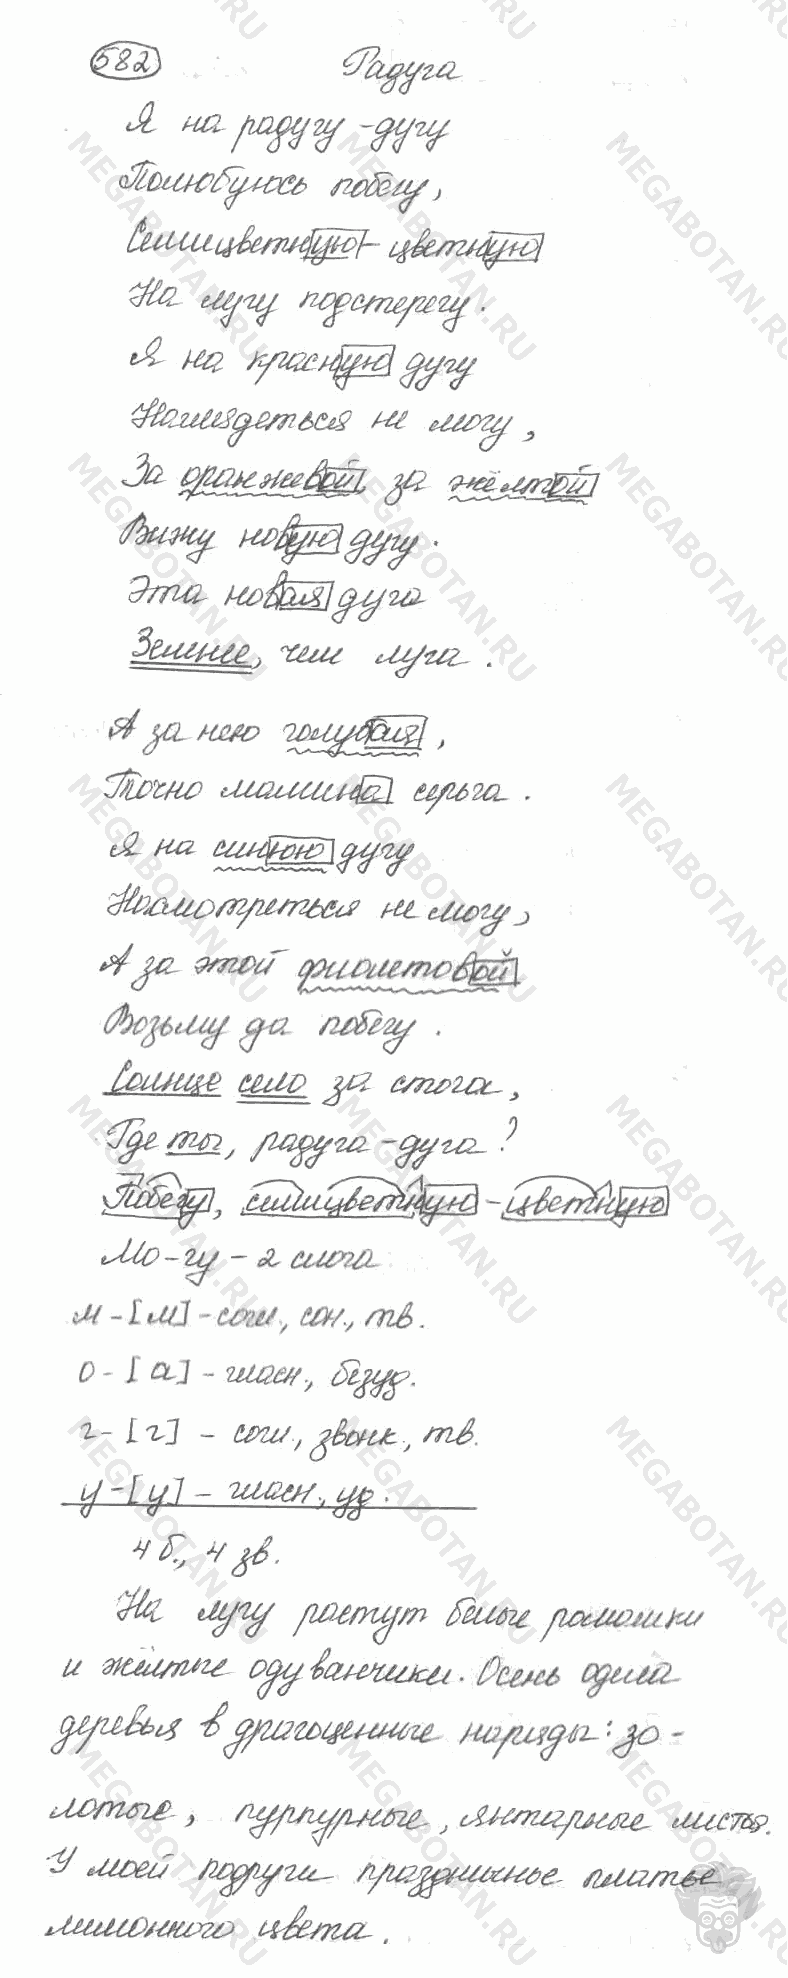 582 Радуга
Я на радугу-дугу
Полюбуюсь побегу,
Семицветную-цветную
На лугу подстерегу.
Я на красную дугу
Наглядеться не могу,
За оранжевой, за жёлтой
Вижу новую дугу.
Эта новая дуга
Зеленее, чем луга.
А за нею голубая,
Точно мамина серьга.
Я на синюю дугу
Насмотреться не могу,
А за этой фиолетовой
Возьму да побегу.
Солнце село за стога,
Где ты, радуга-дуга?
Побегу, семицветную-цветную
Мо-гу - 2 слога
м - [м] - согл., сон., тв.
о - [а] - гласн., безуд.
г - [г] - согл., звонк., тв.
у - [у] - гласн., уд.
4 б., 4 зв.
На лугу растут белые ромашки
и жёлтые одуванчики. Осень одела
деревья в драгоценные наряды: зо-
лотые, пурпурные, янтарные листья.
У моей подруги праздничное платье
лимонного цвета.
MEGABOTAN.RU